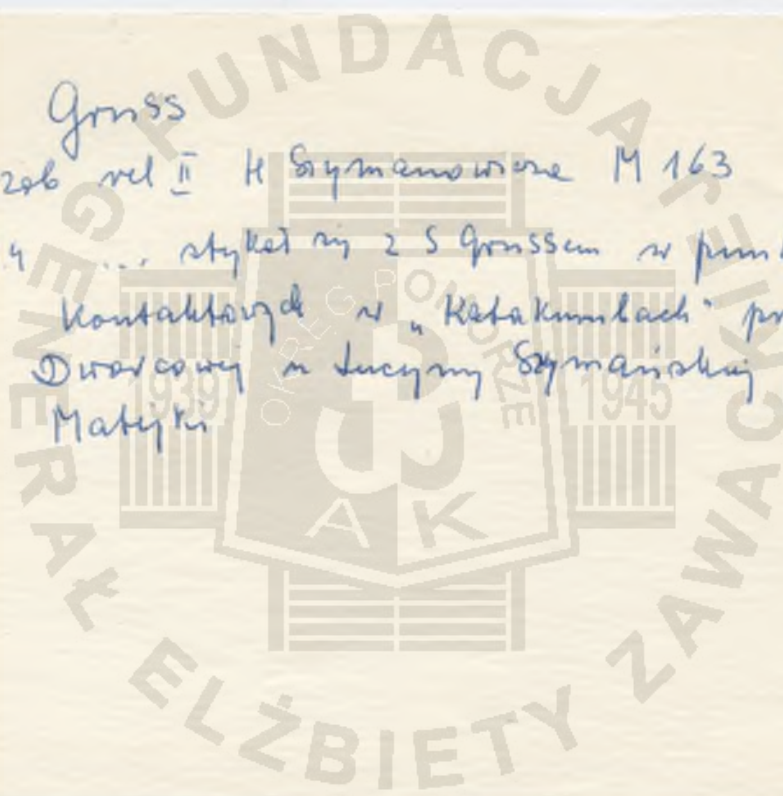 Gruss
zob rel II H Szymanowicza M 163
... stykał się z S Grussem w
Kontaktowych w „Katakumbach"
Dworcowej u Lucyny Szymańskiej
Matejki
FUNDACJA GENERAŁ ELŻBIETY ZAWACKIEJ
OKRĘG POMORZE
1939 1945
AK